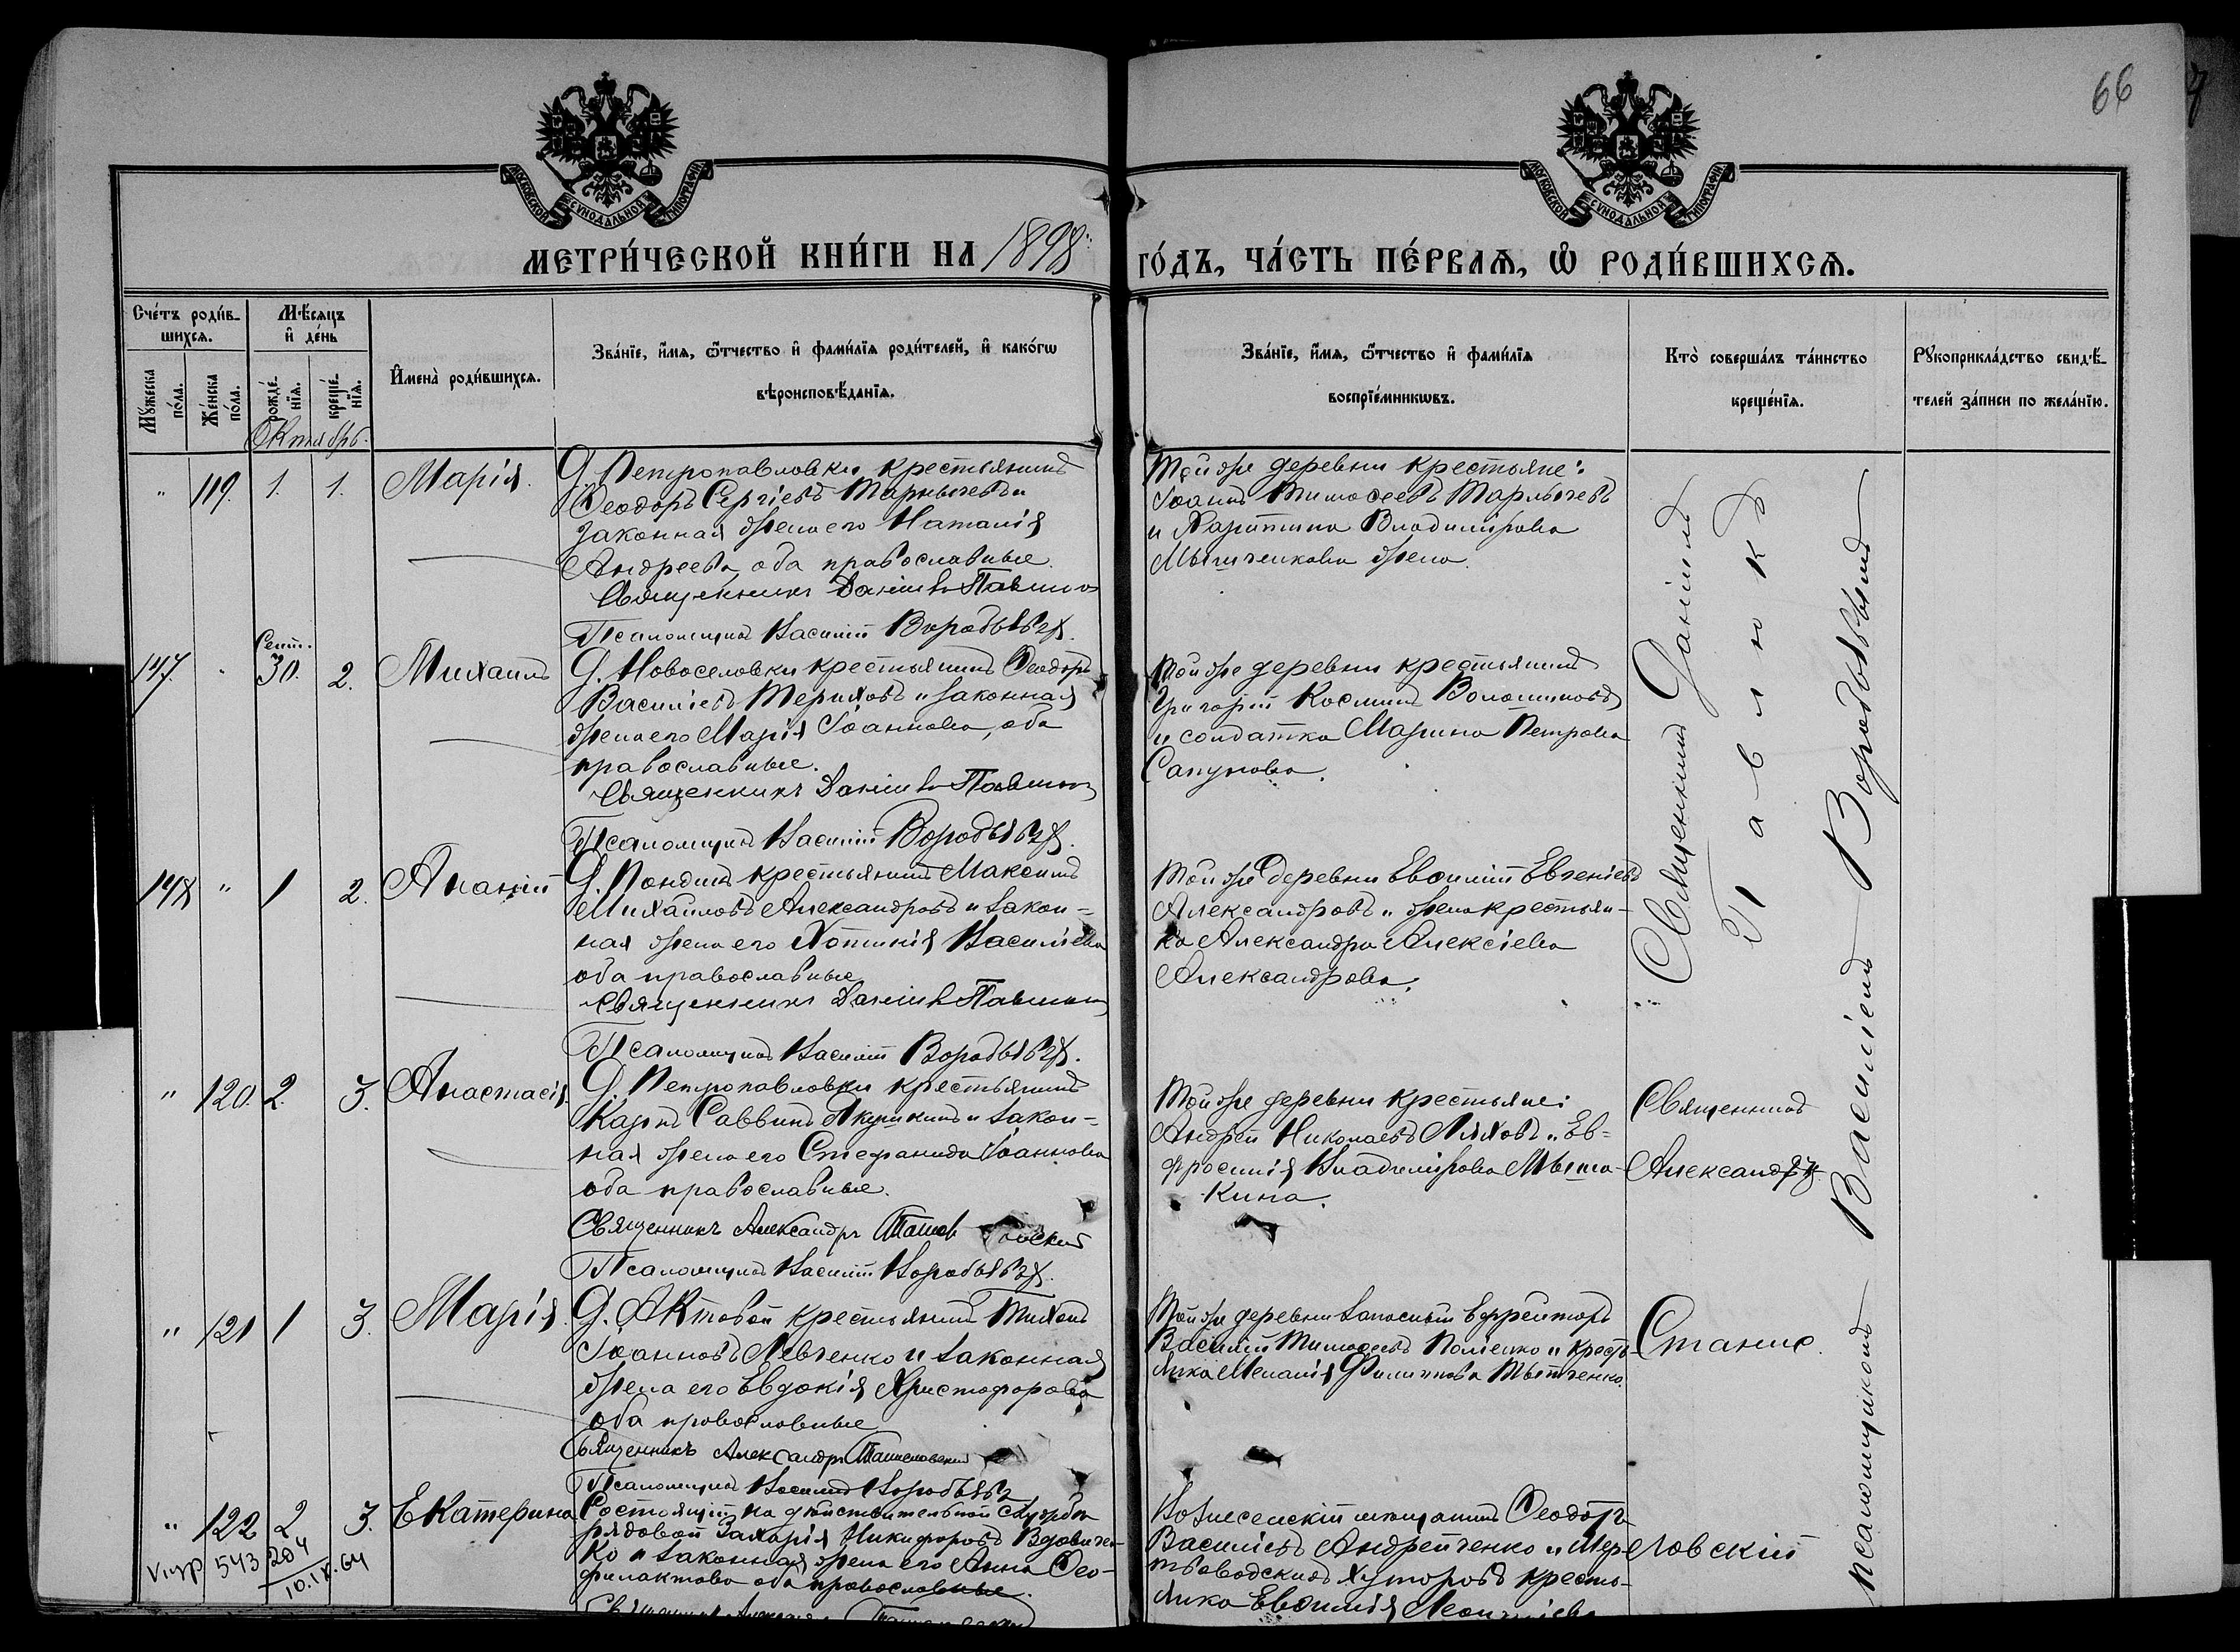 66
МОСКОВСКОЙ СѴНОДАЛЬНОЙ ТИПОГРАФІИ
МОСКОВСКОЙ СѴНОДАЛЬНОЙ ТИПОГРАФІИ
МЕТРИ́ЧЕСКОЙ КНИ́ГИ НА 1898 ГО́ДЪ, ЧА́СТЬ ПЕ́РВАѦ, Ѡ҆ РОДИ́ВШИХСѦ.
Сче́тъ роди́в-
шихсѧ.
Мꙋ́жеска по́ла.
Же́нска по́ла.
Мѣ́сяцъ
и҆ де́нь
рожде́-нїѧ.
креще́-нїѧ.
Октябрь.
И҆мена̀ роди́вшихсѧ.
Зва́нїе, и҆́мѧ, ѻ҆́тчество и҆ фами́лїѧ роди́телей, и҆ како́гѡ
вѣроисповѣ́данїѧ.
Зва́нїе, и҆́мѧ, ѻ҆́тчество и҆ фами́лїѧ
воспрїе́мникѡвъ.
Кто̀ соверша́лъ та́инство
креще́нїѧ.
Рꙋкоприкла́дство свидѣ́-
телей за́писи по жела́нїю.
" 119. 1. 1. Марія.
Д. Петропавловки крестьянинъ
Ѳеодоръ Сергіевъ Тарлычевъ и
законная жена его Наталія
Андреева, оба православные.
Священникъ Даніилъ Павлюкъ
Псаломщикъ Василій Воробьевъ.
Той же деревни крестьяне:
Іоаннъ Тимоѳеевъ Тарлычевъ
и Харитина Владимірова
Мышченкова жена.
147. " Сент. 30. 2. Михаилъ
Д. Новоселовки крестьянинъ Ѳеодоръ
Василіевъ Териховъ и законная
жена его Марія Іоаннова, оба
православные.
Священникъ Даніилъ Павлюкъ
Псаломщикъ Василій Воробьевъ.
Той же деревни крестьянинъ
Григорій Косминъ Волошиновъ
и солдатка Марина Петрова
Сапунова.
148 " 1 2. Ананій
Д. Кондитъ крестьянинъ Максимъ
Михаиловъ Александровъ и закон-
ная жена его Хотинія Василіева
оба православные
Священникъ Даніилъ Павлюкъ
Псаломщикъ Василій Воробьевъ.
Той же деревни Евѳимій Евгеніевъ
Александровъ и жена крестьян-
ка Александра Алексіева
Александрова.
Священникъ Даніилъ
Павлюкъ
псаломщикомъ Василіемъ Воробьевымъ
" 120. 2. 3. Анастасія.
Д. Петропавловки крестьянинъ
Карпъ Саввинъ Якушкинъ и закон-
ная жена его Стефанида Іоаннова
оба православные.
Священникъ Александръ
Псаломщикъ Василій Воробьевъ.
Той же деревни крестьяне:
Андрей Николаевъ Ляховъ и Ев-
фросинія Владимірова Мыша-
кина.
Священникъ
Александръ
" 121 1 3. Марія.
Д. Актовой крестьянинъ Тихонъ
Іоанновъ Левченко и законная
жена его Евдокія Христофорова
оба православные
Священникъ Александръ Станиславскій
Псаломщикъ Василій Воробьевъ
Той же деревни запасный ефрейторъ
Василій Тимоѳеевъ Поленко и кресть-
янка Меланія Филиппова
Станис
" 122 2 3. Екатерина
Состоящій на дѣйствительной службѣ
рядовой Захарія Никифоровъ Вдовичен-
ко и законная жена его Анна Ѳео-
филактова оба православные.
Вознесенскій мѣщанинъ Ѳеодоръ
Василіевъ Андрейченко и Мер-
твоводскихъ хуторовъ кресть-
янка Евѳимія Леонтіева
ловскій
543 204
10.IX.64